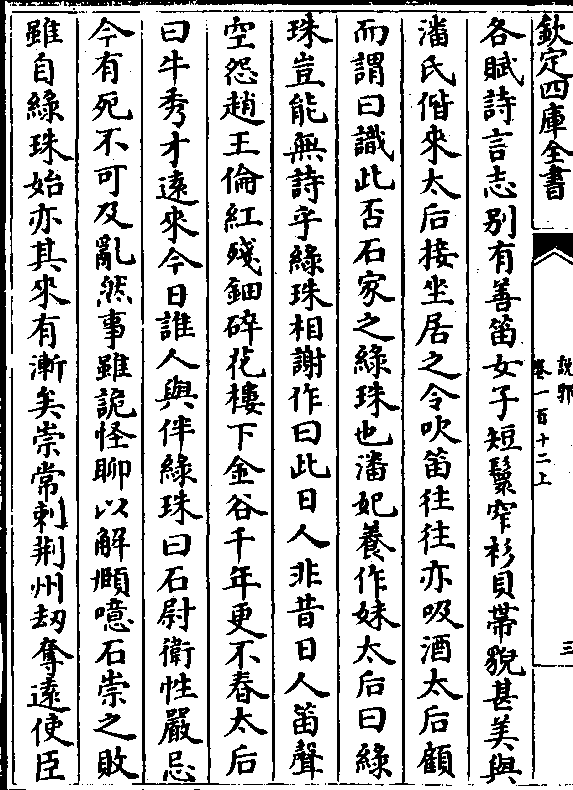 欽定四庫全書
說郛
卷一百十二上
三
各賦詩言志别有善笛女子短鬟窄衫具帶貌甚美與
潘氏偕來太后接坐居之令吹笛往往亦吸酒太后顧
而謂曰識此否石家之綠珠也潘妃養作妹太后曰綠
珠豈能無詩乎綠珠相謝作曰此日人非昔日人笛聲
空怨趙王倫紅殘鈿碎花樓下金谷千年更不春太后
曰牛秀才遠來今日誰人與伴綠珠曰石尉衛性嚴忌
今有死不可及亂然事雖詭怪聊以解頤噫石崇之敗
雖自綠珠始亦其來有漸矣崇常刺荆州劫奪遠使臣